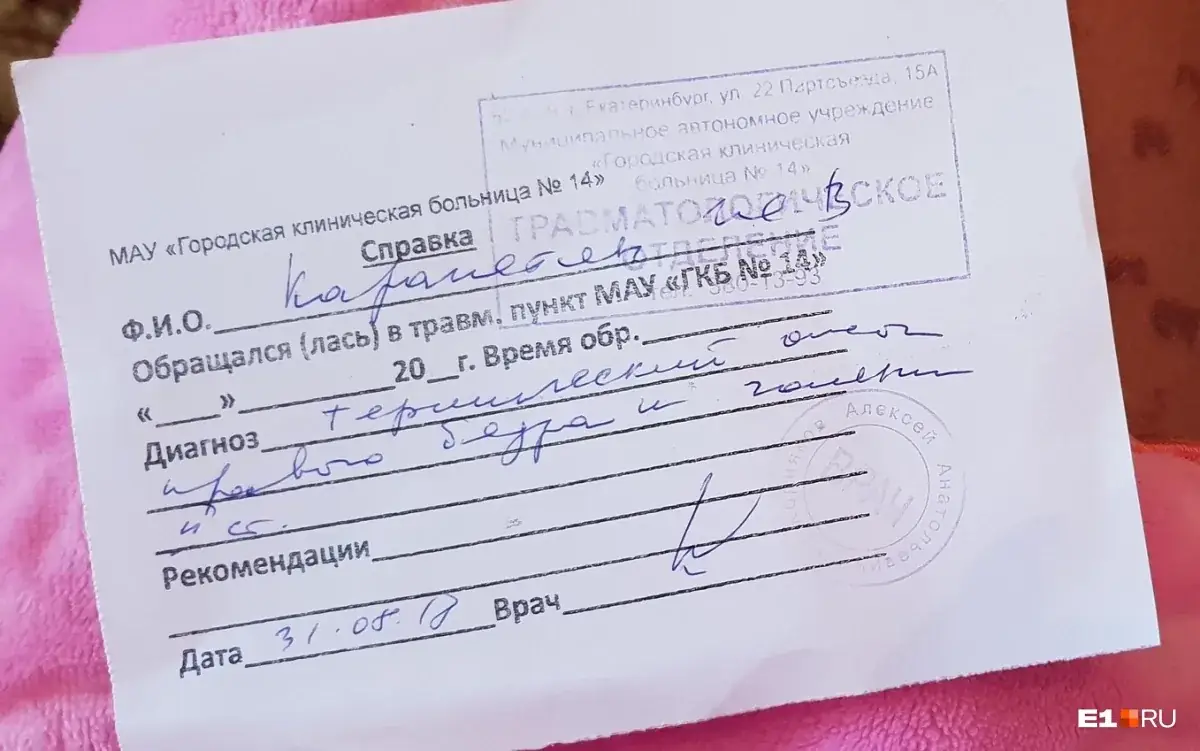 г. Екатеринбург, ул. 22 Партсъезда, 15А
Муниципальное автономное учреждение
«Городская клиническая
больница № 14»
ТРАВМАТОЛОГИЧЕСКОЕ
ОТДЕЛЕНИЕ
МАУ «Городская клиническая больница № 14»
Справка
Ф.И.О.
Обращался (лась) в травм. пункт МАУ «ГКБ № 14»
«____»__________20__г. Время обр.
Диагноз термический ожог
правого бедра и голени
II ст.
Рекомендации
Врач
Дата 31.08.18
Алексей Анатольевич
ВРАЧ
E1.RU